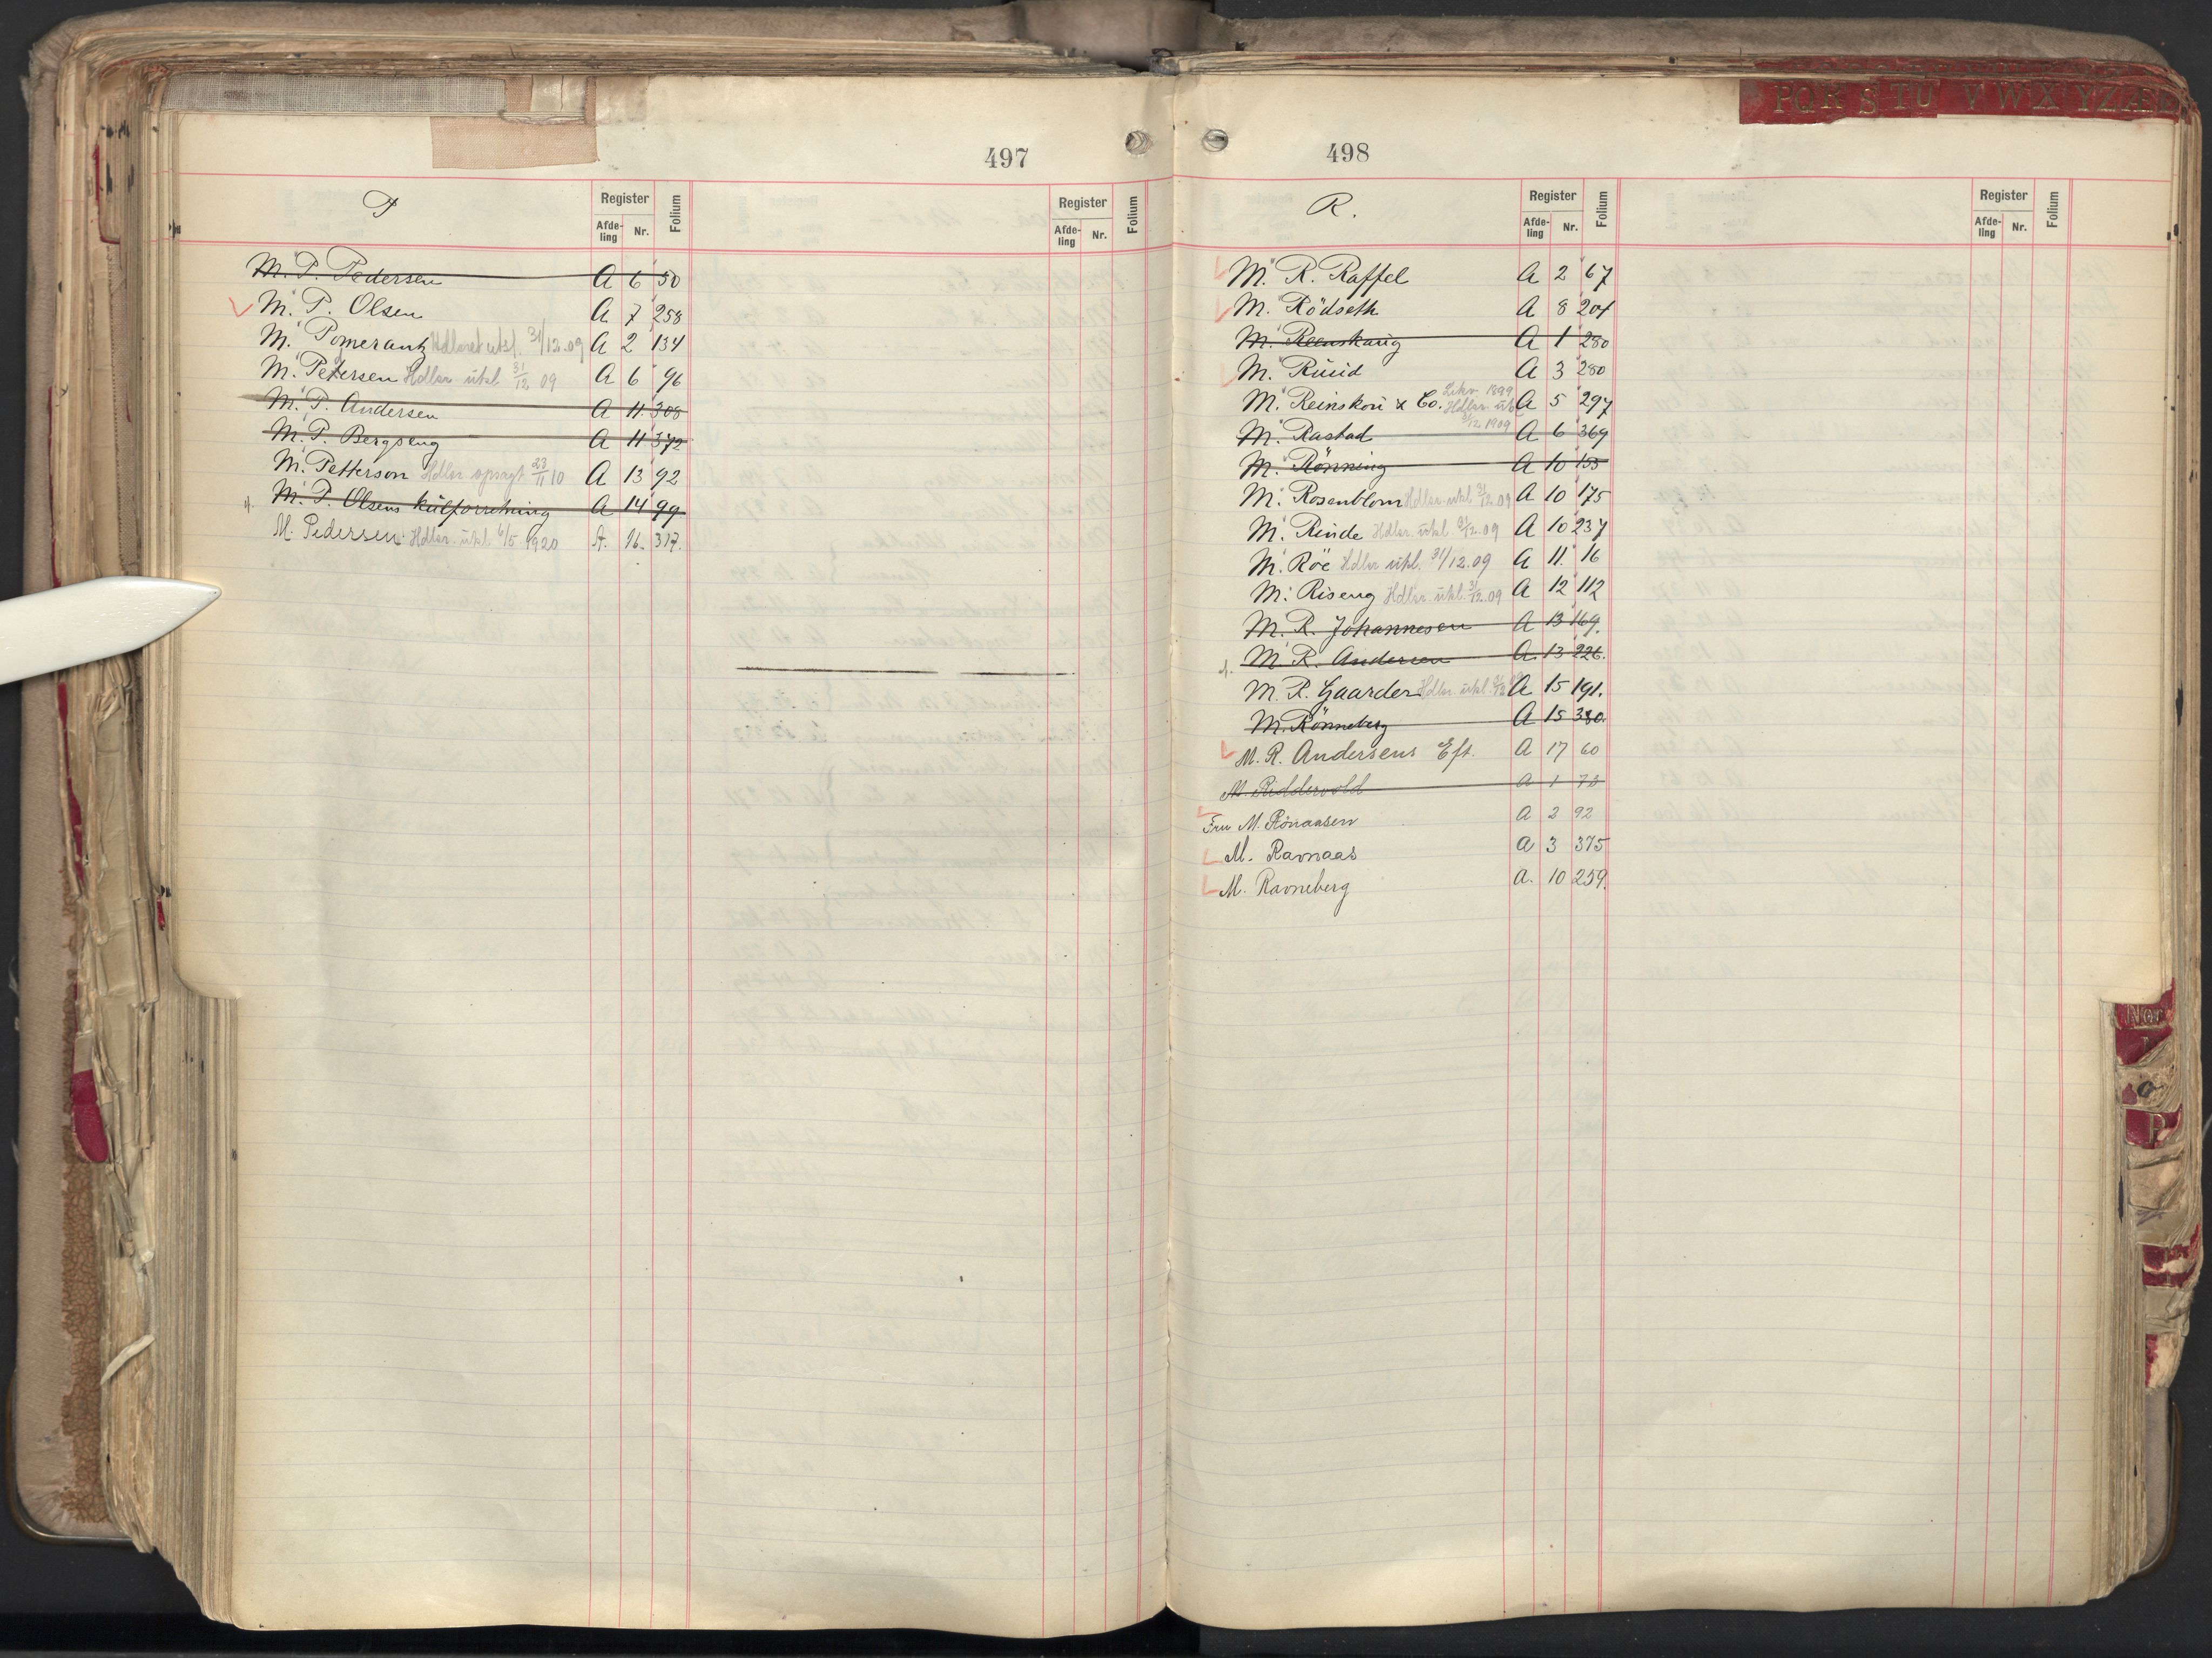 497
P
Register
Folium
Register
Folium
Afde-
ling
Nr.
Afde-
ling
Nr.
M. P. Pedersen A 6 50
M. P. Olsen A 7 258
M. Pomerantz 31/12.09 A 2 134
M. Petersen Hdlsr. utsl. 31/12 09 A 6 96
M. P. Andersen A 11 308
M. P. Bergseng A 11 372
M. Petterson Hdlsr. opsagt 23/11 10 A 13 92
M. P. Olsens Kulforretning A 14 99
M. Pedersen Hdlsr. utsl. 6/5 1920 A. 16. 317.
PQR S TU V W X Y Z Æ
498
R.
Register
Folium
Register
Folium
Afde-
ling
Nr.
Afde-
ling
Nr.
M. R. Raffel A 2 67
M. Rödseth A 8 204
M. Reenskaug A 1 280
M. Ruud A 3 280
M. Reinskou & Co. Likv. 1899 Hdlsr. utsl. 31/12 1909 A 5 297
M. Rastad A 6 369
M. Rönning A 10 155
M. Rosenblom Hdlsr. utsl. 31/12.09 A 10 175
M. Rinde Hdlsr. utsl. 31/12.09 A 10 237
M. Röe Hdlsr utsl. 31/12.09 A 11. 16
M. Riseng Hdlsr. utsl. 31/12.09 A 12 112
M. R. Johannesen A 13 169.
M. R. Andersen A. 13 226.
M. R. Gaarder Hdlsr. utsl. A 15 191.
M. Rönneberg A 15 380.
M. R. Andersens Eft. A 17 60
M. Riddervold A 1 73
Fru M. Rönaasen A 2 92
M. Ravnaas A 3 375
M. Ravneberg A. 10 259.
Nor
P